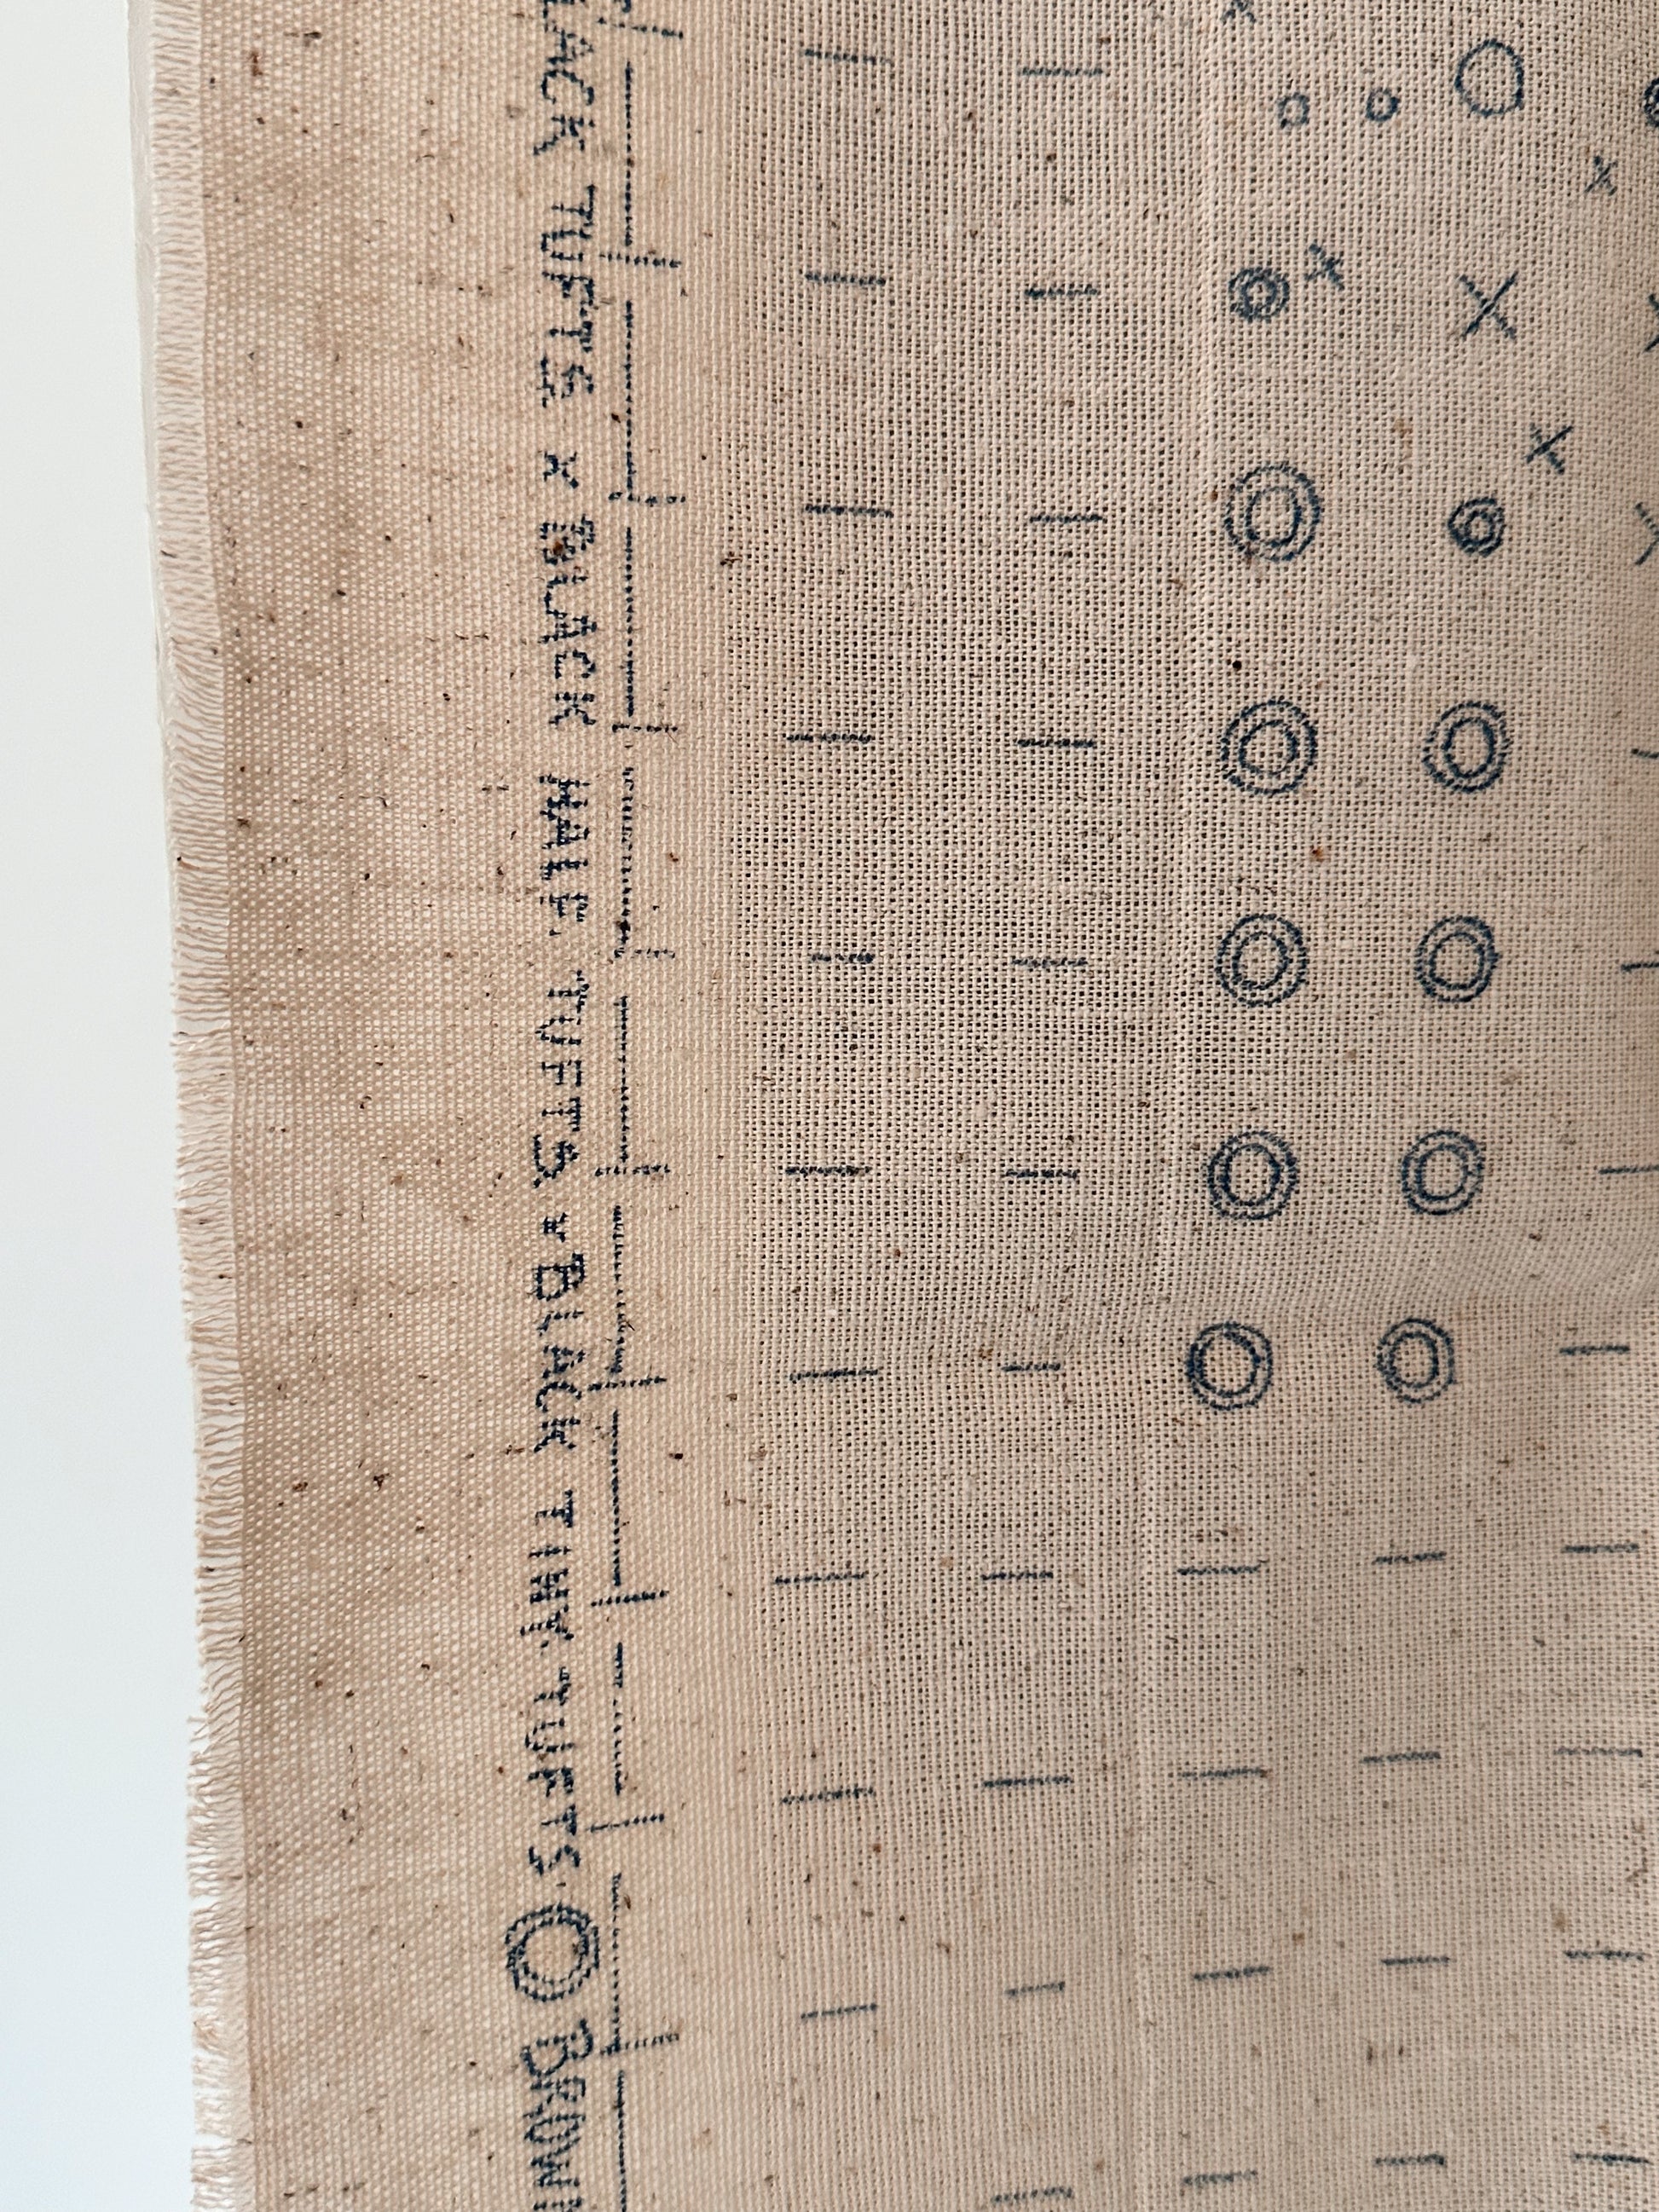 LACK TUFTS x BLACK HALF. TUFTS x BLACK TINY. TUFTS. O BROWN